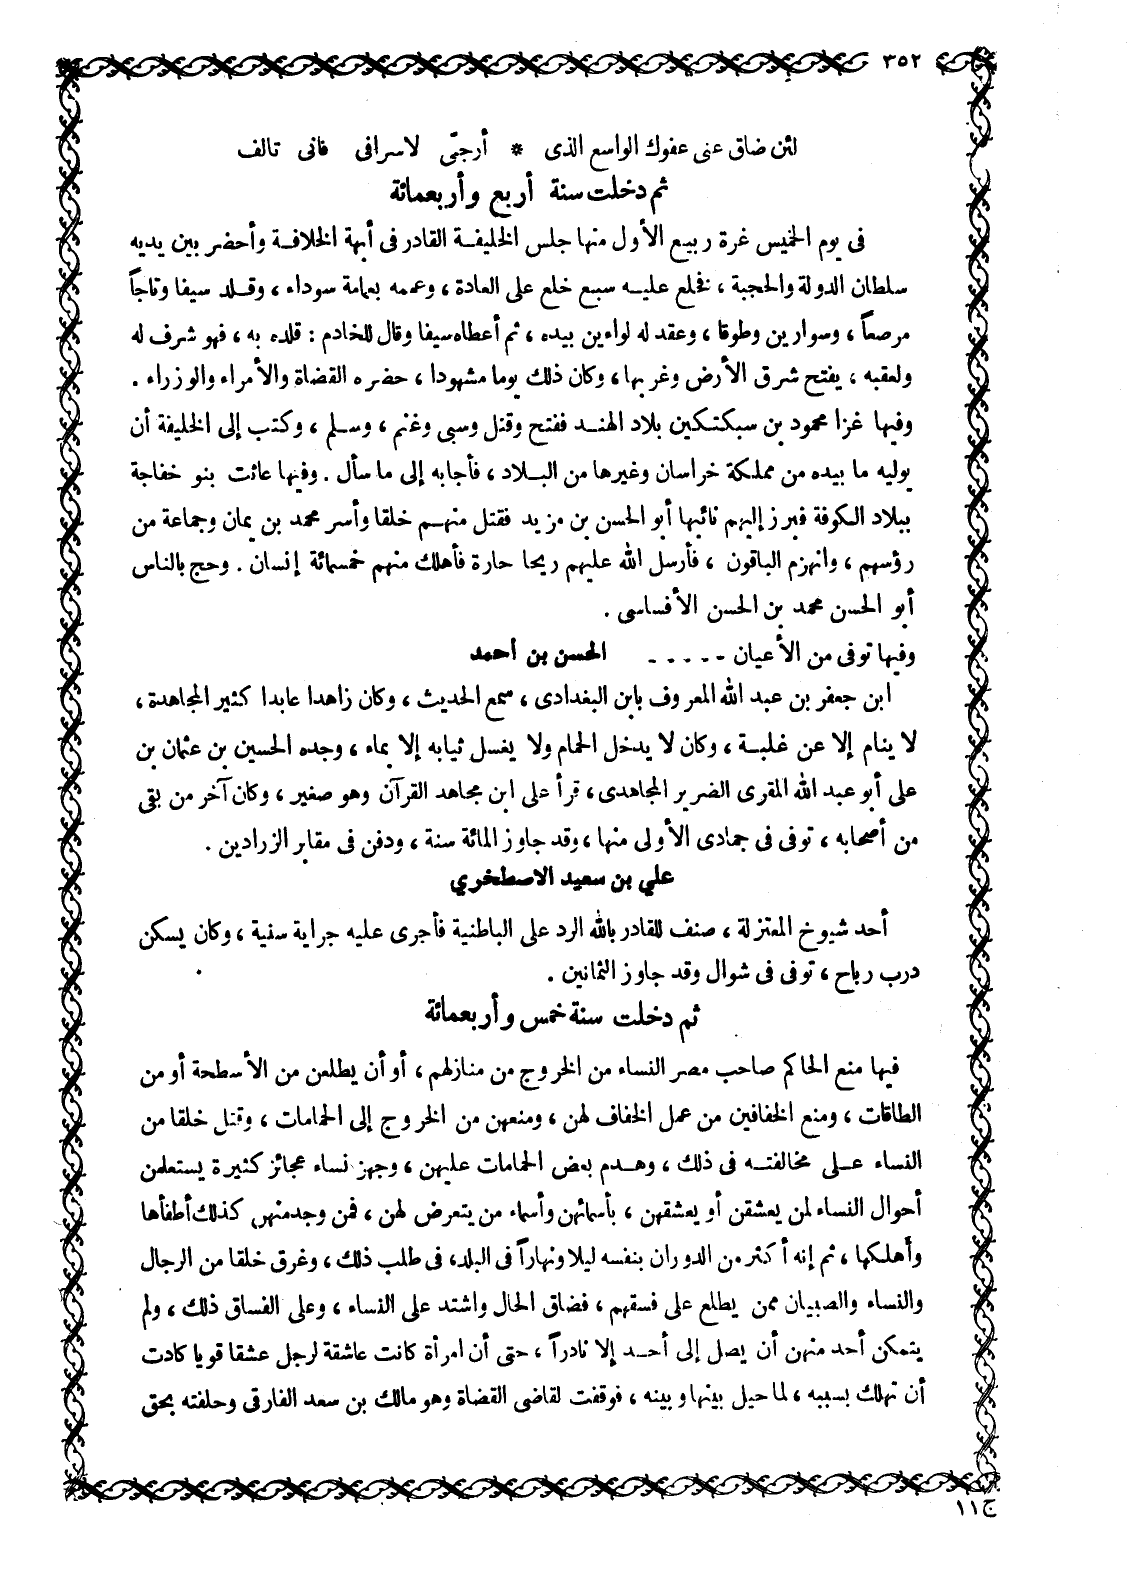 ٣٥٢
لئن ضاق عنى عفوك الواسع الذى * أرجّى لاسرافى فانى تالف
ثم دخلت سنة أربع وأربعمائة
فى يوم الخميس غرة ربيع الأول منها جلس الخليفة القادر فى أبهة الخلافة وأحضر بين يديه
سلطان الدولة والحجبة ، فخلع عليه سبع خلع على العادة ، وعممه بعمامة سوداء ، وقلد سيفا وتاجاً
مرصعاً ، وسوارين وطوقا ، وعقد له لواءين بيده ، ثم أعطاه سيفا وقال للخادم : قلده به ، فهو شرف له
ولعقبه ، يفتح شرق الأرض وغربها ، وكان ذلك يوما مشهودا ، حضره القضاة والأمراء والوزراء .
وفيها غزا محمود بن سبكتكين بلاد الهند ففتح وقتل وسبى وغنم ، وسلم ، وكتب إلى الخليفة أن
يوليه ما بيده من مملكة خراسان وغيرها من البلاد ، فأجابه إلى ما سأل . وفيها عاثت بنو خفاجة
ببلاد الكوفة فبرز إليهم نائبها أبو الحسن بن مزيد فقتل منهم خلقا وأسر محمد بن يمان وجماعة من
رؤسهم ، وانهزم الباقون ، فأرسل الله عليهم ريحا حارة فأهلك منهم خمسمائة إنسان . وحج بالناس
أبو الحسن محمد بن الحسن الأفساسى .
وفيها توفى من الأعيان - - - - - الحسن بن أحمد
ابن جعفر بن عبد الله المعروف بابن البغدادى ، سمع الحديث ، وكان زاهدا عابدا كثير المجاهدة ،
لا ينام إلا عن غلبة ، وكان لا يدخل الحمام ولا يغسل ثيابه إلا بماء ، وجده الحسين بن عثمان بن
على أبو عبد الله المقرى الضرير المجاهدى ، قرأ على ابن مجاهد القرآن وهو صغير ، وكان آخر من بقى
من أصحابه ، توفى فى جمادى الأولى منها ، وقد جاوز المائة سنة ، ودفن فى مقابر الزرادين .
علي بن سعيد الاصطخري
أحد شيوخ المعتزلة ، صنف للقادر بالله الرد على الباطنية فأجرى عليه جراية سنية ، وكان يسكن
درب رباح ، توفى فى شوال وقد جاوز الثمانين .
ثم دخلت سنة خمس وأربعمائة
فيها منع الحاكم صاحب مصر النساء من الخروج من منازلهم ، أو أن يطلعن من الأسطحة أو من
الطاقات ، ومنع الخفافين من عمل الخفاف لهن ، ومنعهن من الخروج إلى الحمامات ، وقتل خلقا من
النساء على مخالفته فى ذلك ، وهدم بعض الحمامات عليهن ، وجهز نساء عجائز كثيرة يستعلمن
أحوال النساء لمن يعشقن أو يعشقهن ، بأسمائهن وأسماء من يتعرض لهن ، فمن وجد منهن كذلك أطفأها
وأهلكها ، ثم إنه أكثر من الدوران بنفسه ليلا ونهاراً فى البلد ، فى طلب ذلك ، وغرق خلقا من الرجال
والنساء والصبيان ممن يطلع على فسقهم ، فضاق الحال واشتد على النساء ، وعلى الفساق ذلك ، ولم
يتمكن أحد منهن أن يصل إلى أحد إلا نادراً ، حتى أن امرأة كانت عاشقة لرجل عشقا قويا كادت
أن تهلك بسببه ، لما حيل بينها وبينه ، فوقفت لقاضى القضاة وهو مالك بن سعد الفارقى وحلفته بحق
ج١١